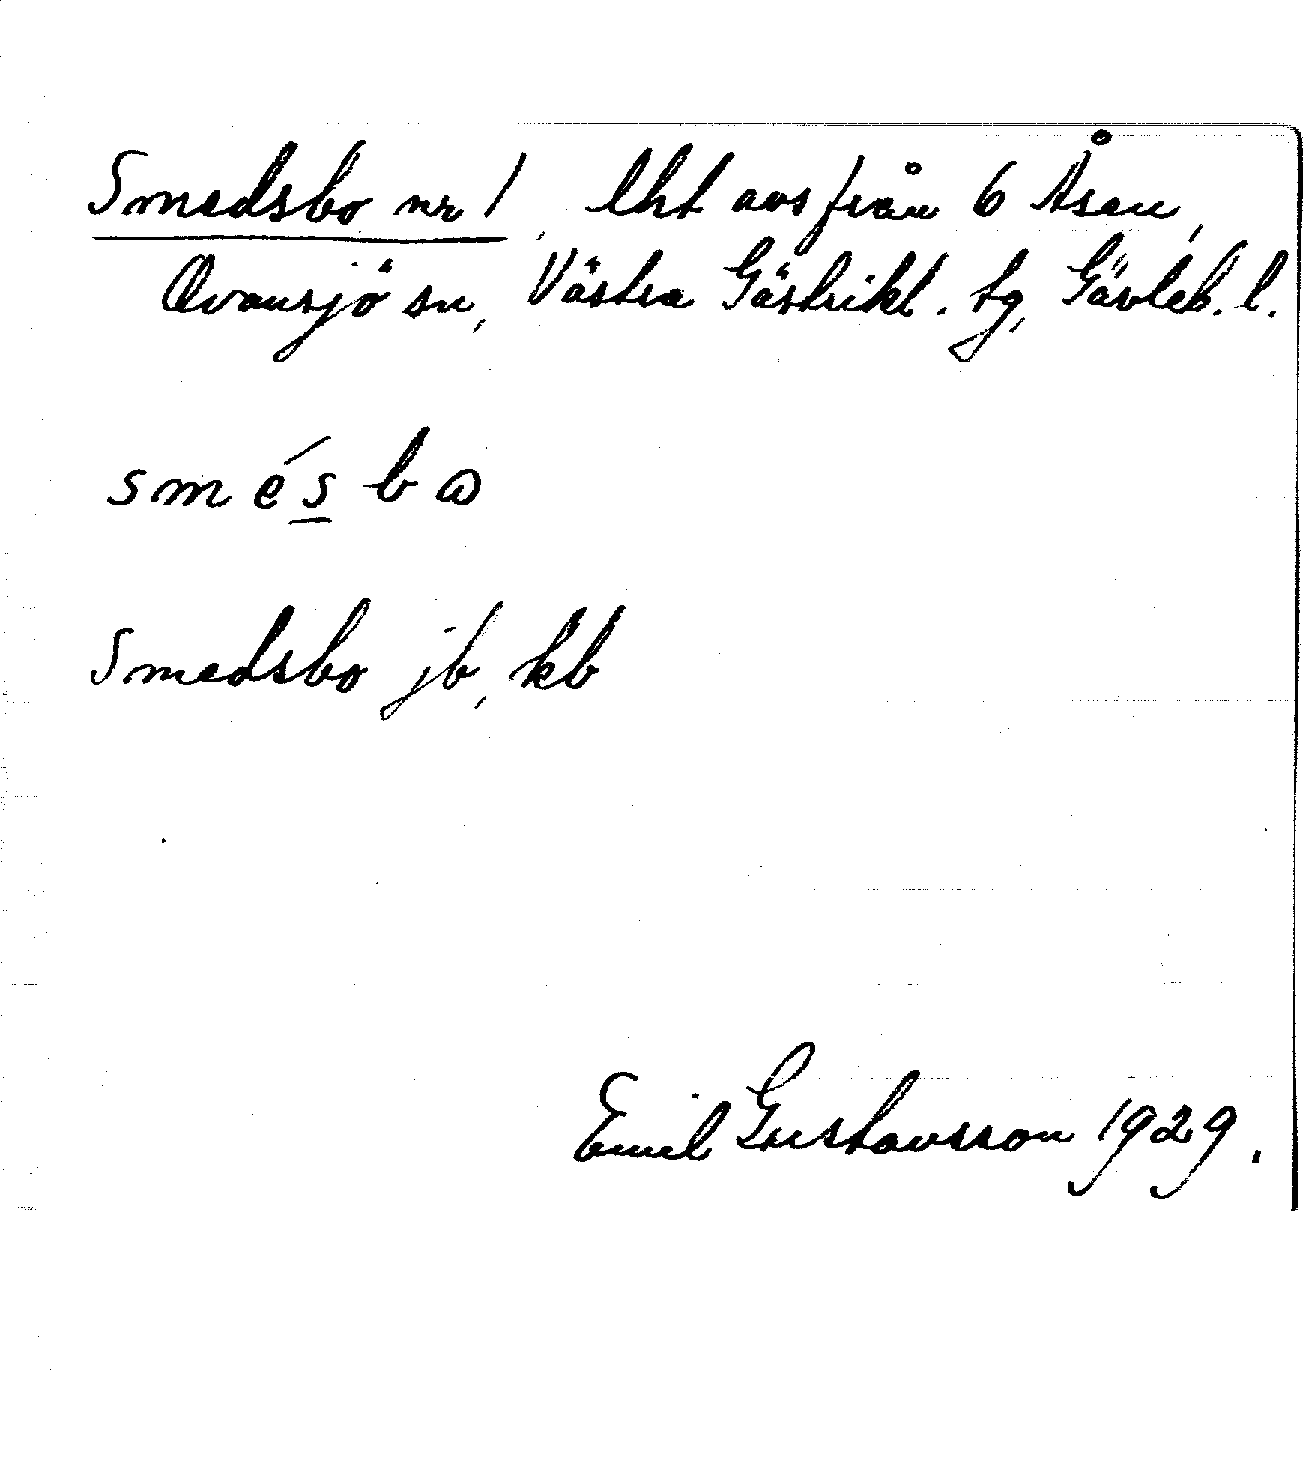 Smedsbo nr 1, lht avs från 6 Åsen,
Ovansjö sn, Västra Gästrikl. tg, Gävleb. l.
smésbɷ
Smedsbo jb, kb
Emil Gustavsson 1929.